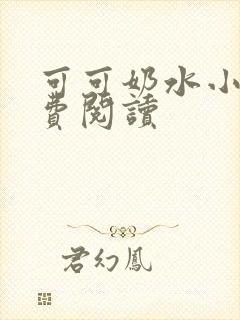 可可奶水小
費閱讀
君幻鳳